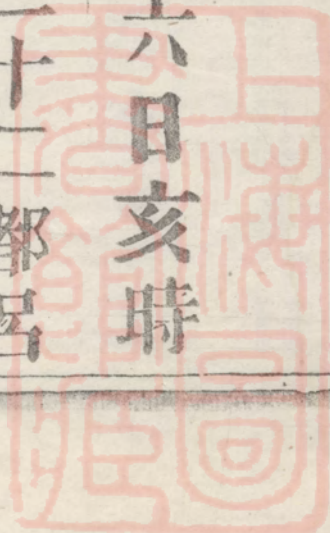 六日亥時
二十二都呂
上海圖書館藏